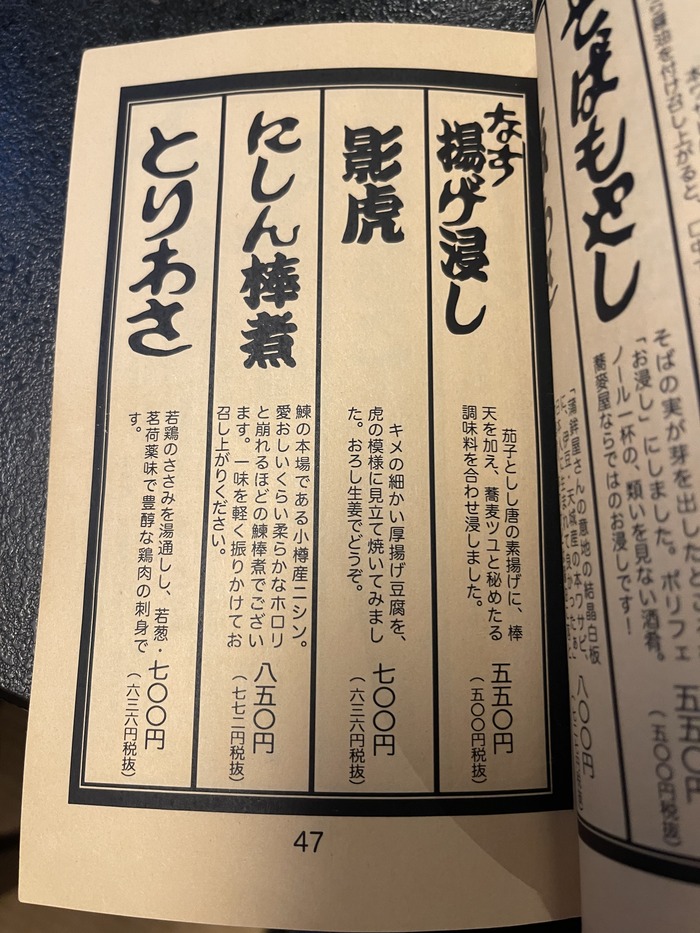 そばもやし
そばの実が芽を出した
「お浸し」にしました。ポリフェ
ノール一杯の、類いを見ない酒肴。
蕎麦屋ならではのお浸しです！
五五〇円
（五〇〇円税抜）
「蒲鉾屋さんの意地の結晶白板
八〇〇円
なす揚げ浸し
茄子としし唐の素揚げに、棒
天を加え、蕎麦ツユと秘めたる
調味料を合わせ浸しました。
五五〇円
（五〇〇円税抜）
影虎
キメの細かい厚揚げ豆腐を、
虎の模様に見立て焼いてみまし
た。おろし生姜でどうぞ。
七〇〇円
（六三六円税抜）
にしん棒煮
鰊の本場である小樽産ニシン。
愛おしいくらい柔らかなホロリ
と崩れるほどの鰊棒煮でござい
ます。一味を軽く振りかけてお
召し上がりください。
八五〇円
（七七二円税抜）
とりわさ
若鶏のささみを湯通しし、若葱・
茗荷薬味で豊醇な鶏肉の刺身で
す。
七〇〇円
（六三六円税抜）
47